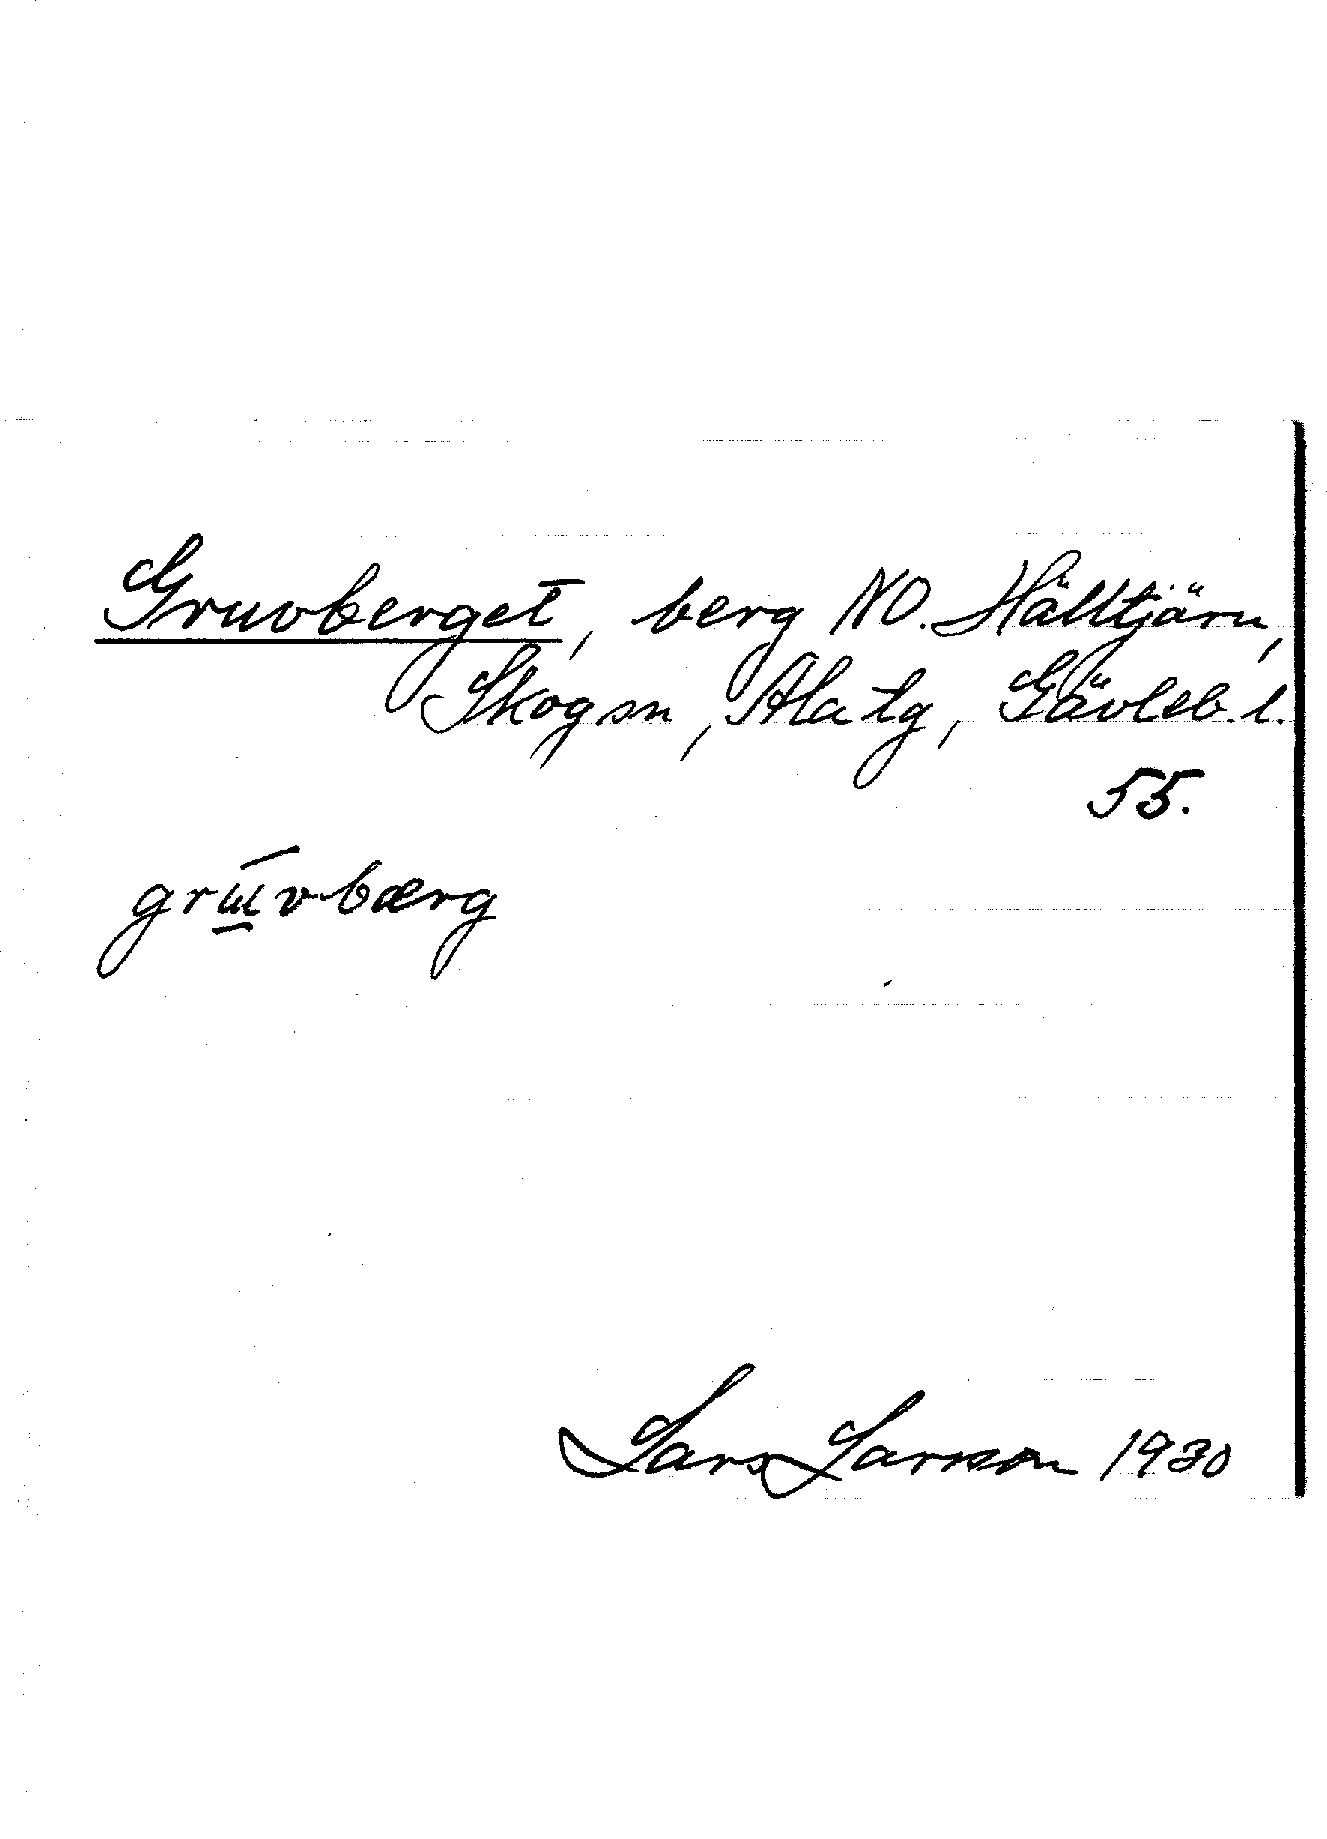 Gruvberget, berg NO. Hälltjärn,
Skog sn, Ala tg, Gävleb. l.
55.
grɯ́vbærg
Lars Larsson 1930